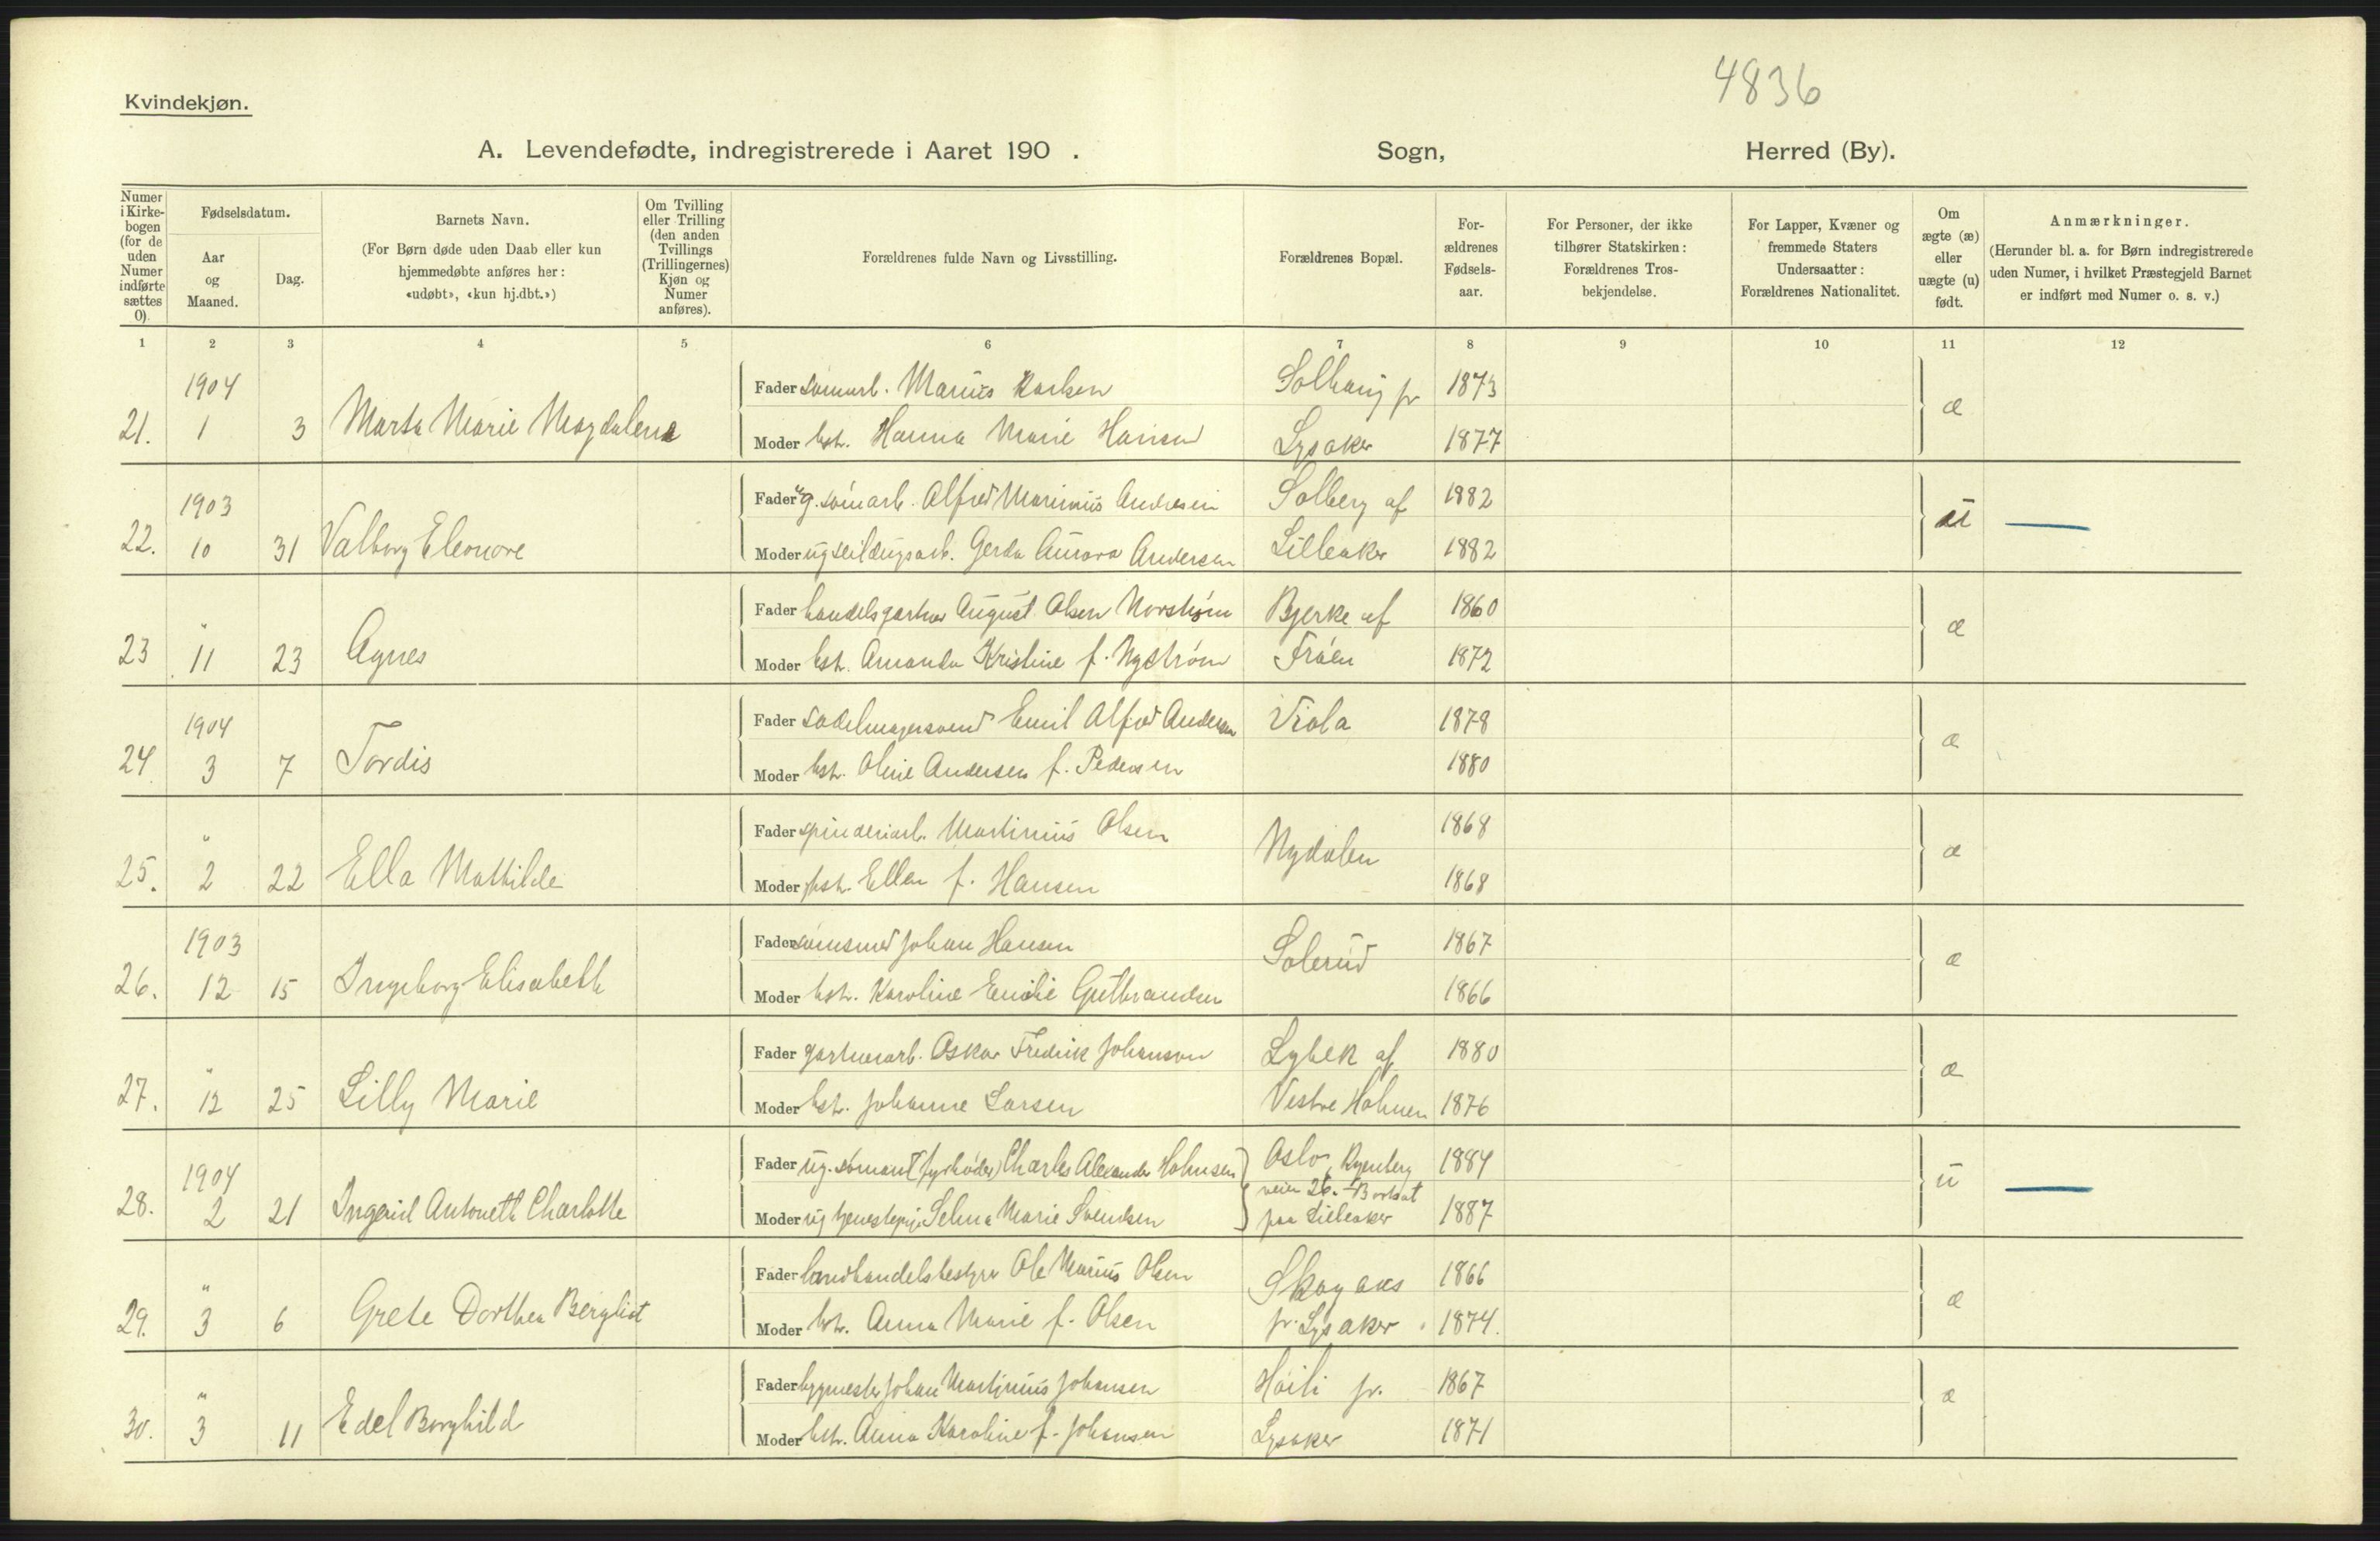 4836
Kvindekjøn.
A. Levendefødte, indregistrerede i Aaret 190 . Sogn, Herred (By).
Numer i Kirkebogen (for de uden Numer indførte sættes 0).
Fødselsdatum.
Aar og Maaned.
Dag.
Barnets Navn.
(For Børn døde uden Daab eller kun hjemmedøbte anføres her: «udøbt», «kun hj.dbt.»)
Om Tvilling eller Trilling (den anden Tvillings (Trillingernes) Kjøn og Numer anføres).
Forældrenes fulde Navn og Livsstilling.
Forældrenes Bopæl.
Forældrenes Fødselsaar.
For Personer, der ikke tilhører Statskirken: Forældrenes Trosbekjendelse.
For Lapper, Kvæner og fremmede Staters Undersaatter: Forældrenes Nationalitet.
Om ægte (æ) eller uægte (u) født.
Anmærkninger.
(Herunder bl. a. for Børn indregistrerede uden Numer, i hvilket Præstegjeld Barnet er indført med Numer o. s. v.)
1 2 3 4 5 6 7 8 9 10 11 12
1904
Fader sømarb. Marius Karlsen Solhaug pr 1873
21. 1 3 Marta Marie Magdalena æ
Moder hst. Hanna Marie Hansen Lysaker 1877
1903
Fader ug. sømarb. Alfred Marinius Andresen Solberg af 1882
22. 10 31 Valborg Eleonore u
Moder ug seildugsarb. Gerda Aurora Andersen Lilleaker 1882
Fader handelsgartner August Olsen Norstrøm Bjerke af 1860
23 " 11 23 Agnes æ
Moder hst. Amanda Kristine f. Nystrøm Frøen 1872
1904
Fader sadelmagersvend Emil Alfred Andersen Viola 1878
24 3 7 Tordis æ
Moder hst. Oline Andersen f. Pedersen 1880
Fader spinderiarb. Martinius Olsen Nydalen 1868
25. " 2 22 Ella Mathilde æ
Moder hst. Ellen f. Hansen 1868
1903
Fader sømsmed Johan Hansen Solerud 1867
26. 12 15 Ingeborg Elisabeth æ
Moder hst. Karoline Emilie Gutbrandsen 1866
Fader gartnerarb. Oskar Fredrik Johansen Lybek af 1880
27. " 12 25 Lilly Marie æ
Moder hst. Johanne Larsen Vestre Holmen 1876
1904
Fader ug. sømand (fyrbøder) Charles Alexander Holmsen Oslo, Ryenberg 1884
28. 2 21 Ingarid Antonette Charlotte veien 26. Bortsat u
Moder ug tjenestepige Selma Marie Svendsen paa Lilleaker 1887
Fader landhandelsbestyrer Ole Marius Olsen Skogaas 1866
29. " 3 6 Grete Dorthea Bergliot æ
Moder hst. Anna Marie f. Olsen pr. Lysaker 1874.
Fader bygmester Johan Martinius Johansen Høili pr. 1867
30. " 3 11 Edel Borghild æ
Moder hst. Anna Karoline f. Johansen Lysaker 1871